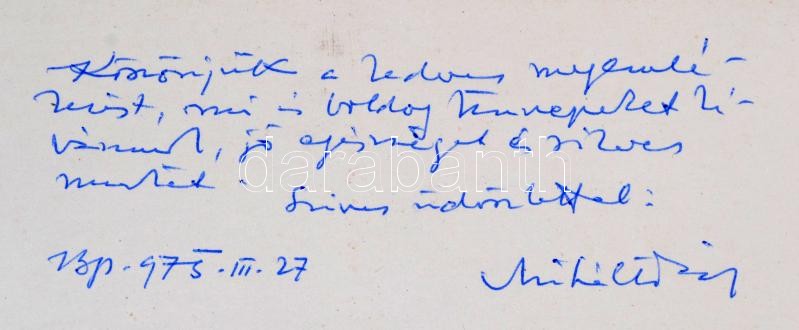 Köszönjük a kedves megemlé-
kezést, mi is boldog ünnepeket kí-
vánunk, jó egészséget és sikeres
munkát.
Szives üdvözlettel:
Bp. 975. III. 27
darabanth